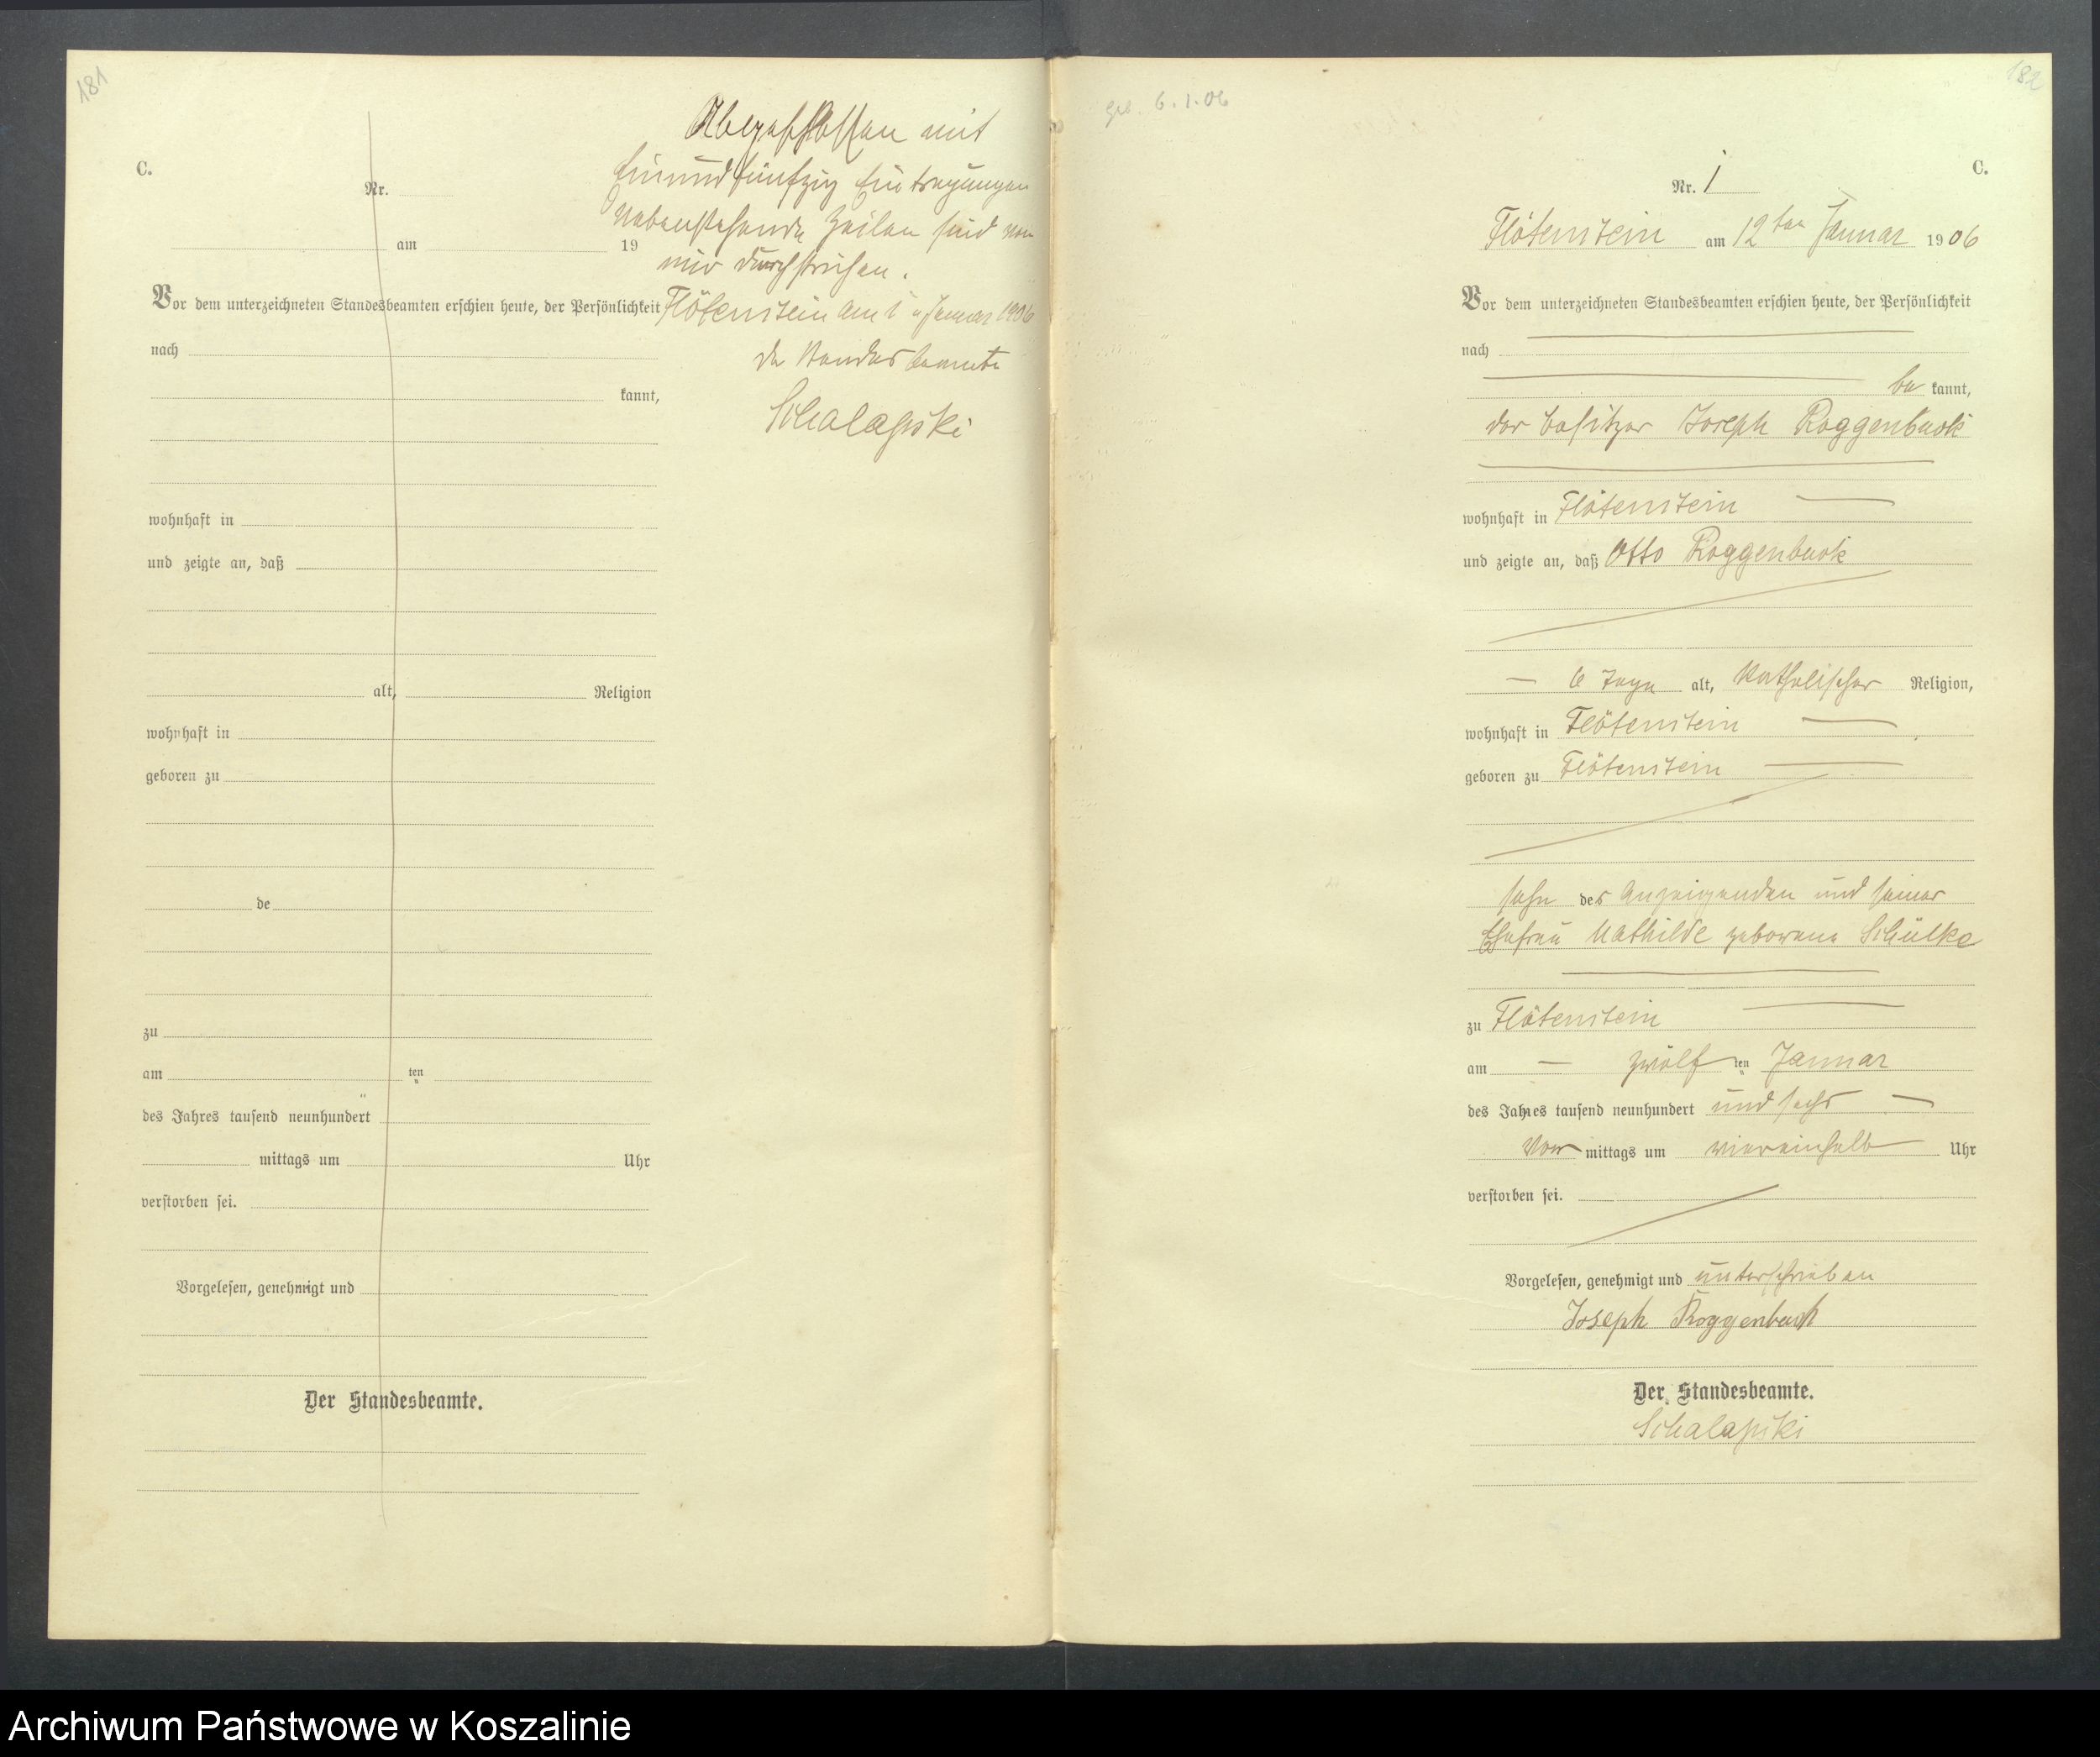 181
C.
Nr.
am 19
Vor dem unterzeichneten Standesbeamten erschien heute, der Persönlichkeit
nach
kannt,
wohnhaft in
und zeigte an, daß
alt, Religion
wohnhaft in
geboren zu
de
zu
am ten
des Jahres tausend neunhundert
mittags um Uhr
verstorben sei.
Vorgelesen, genehmigt und
Der Standesbeamte.
Abgeschlossen mit
Einundfünfzig Eintragungen
Nebenstehende Zeilen sind von
mir durchstrichen.
Flötenstein am 1 Januar 1906
Der Standesbeamte
Schalapski
182
geb. 6.1.06
C.
Nr. 1
Flötenstein am 12ten Januar 1906
Vor dem unterzeichneten Standesbeamten erschien heute, der Persönlichkeit
nach
be kannt,
der Besitzer Joseph Roggenbuck
wohnhaft in Flötenstein
und zeigte an, daß Otto Roggenbuck
6 Tage alt, katholischer Religion,
wohnhaft in Flötenstein
geboren zu Flötenstein
Sohn des Anzeigenden und seiner
Ehefrau Mathilde geborene Schülke
zu Flötenstein
am zwölf ten Januar
des Jahres tausend neunhundert und sechs
Vor mittags um viereinhalb Uhr
verstorben sei.
Vorgelesen, genehmigt und unterschrieben
Joseph Roggenbuck
Der Standesbeamte.
Schalapski
Archiwum Państwowe w Koszalinie